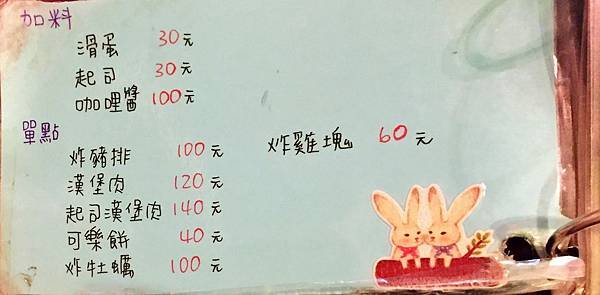 加料
滑蛋 30元
起司 30元
咖哩醬 100元
單點
炸豬排 100元 炸雞塊 60元
漢堡肉 120元
起司漢堡肉 140元
可樂餅 40元
炸牡蠣 100元